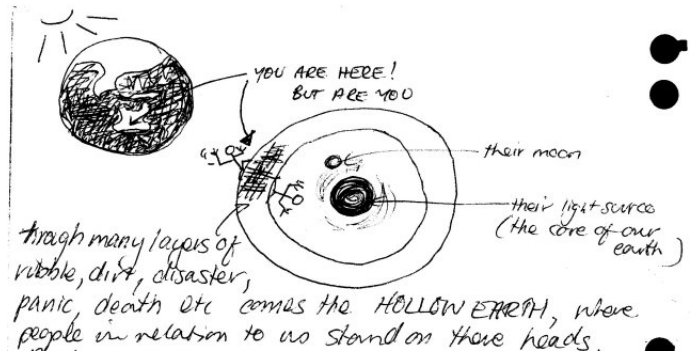 YOU ARE HERE!
BUT ARE YOU
their moon
their light source
(the core of our
earth)
through many layers of
rubble, dirt, disaster,
panic, death etc comes the HOLLOW EARTH, where
people in relation to us stand on there heads.